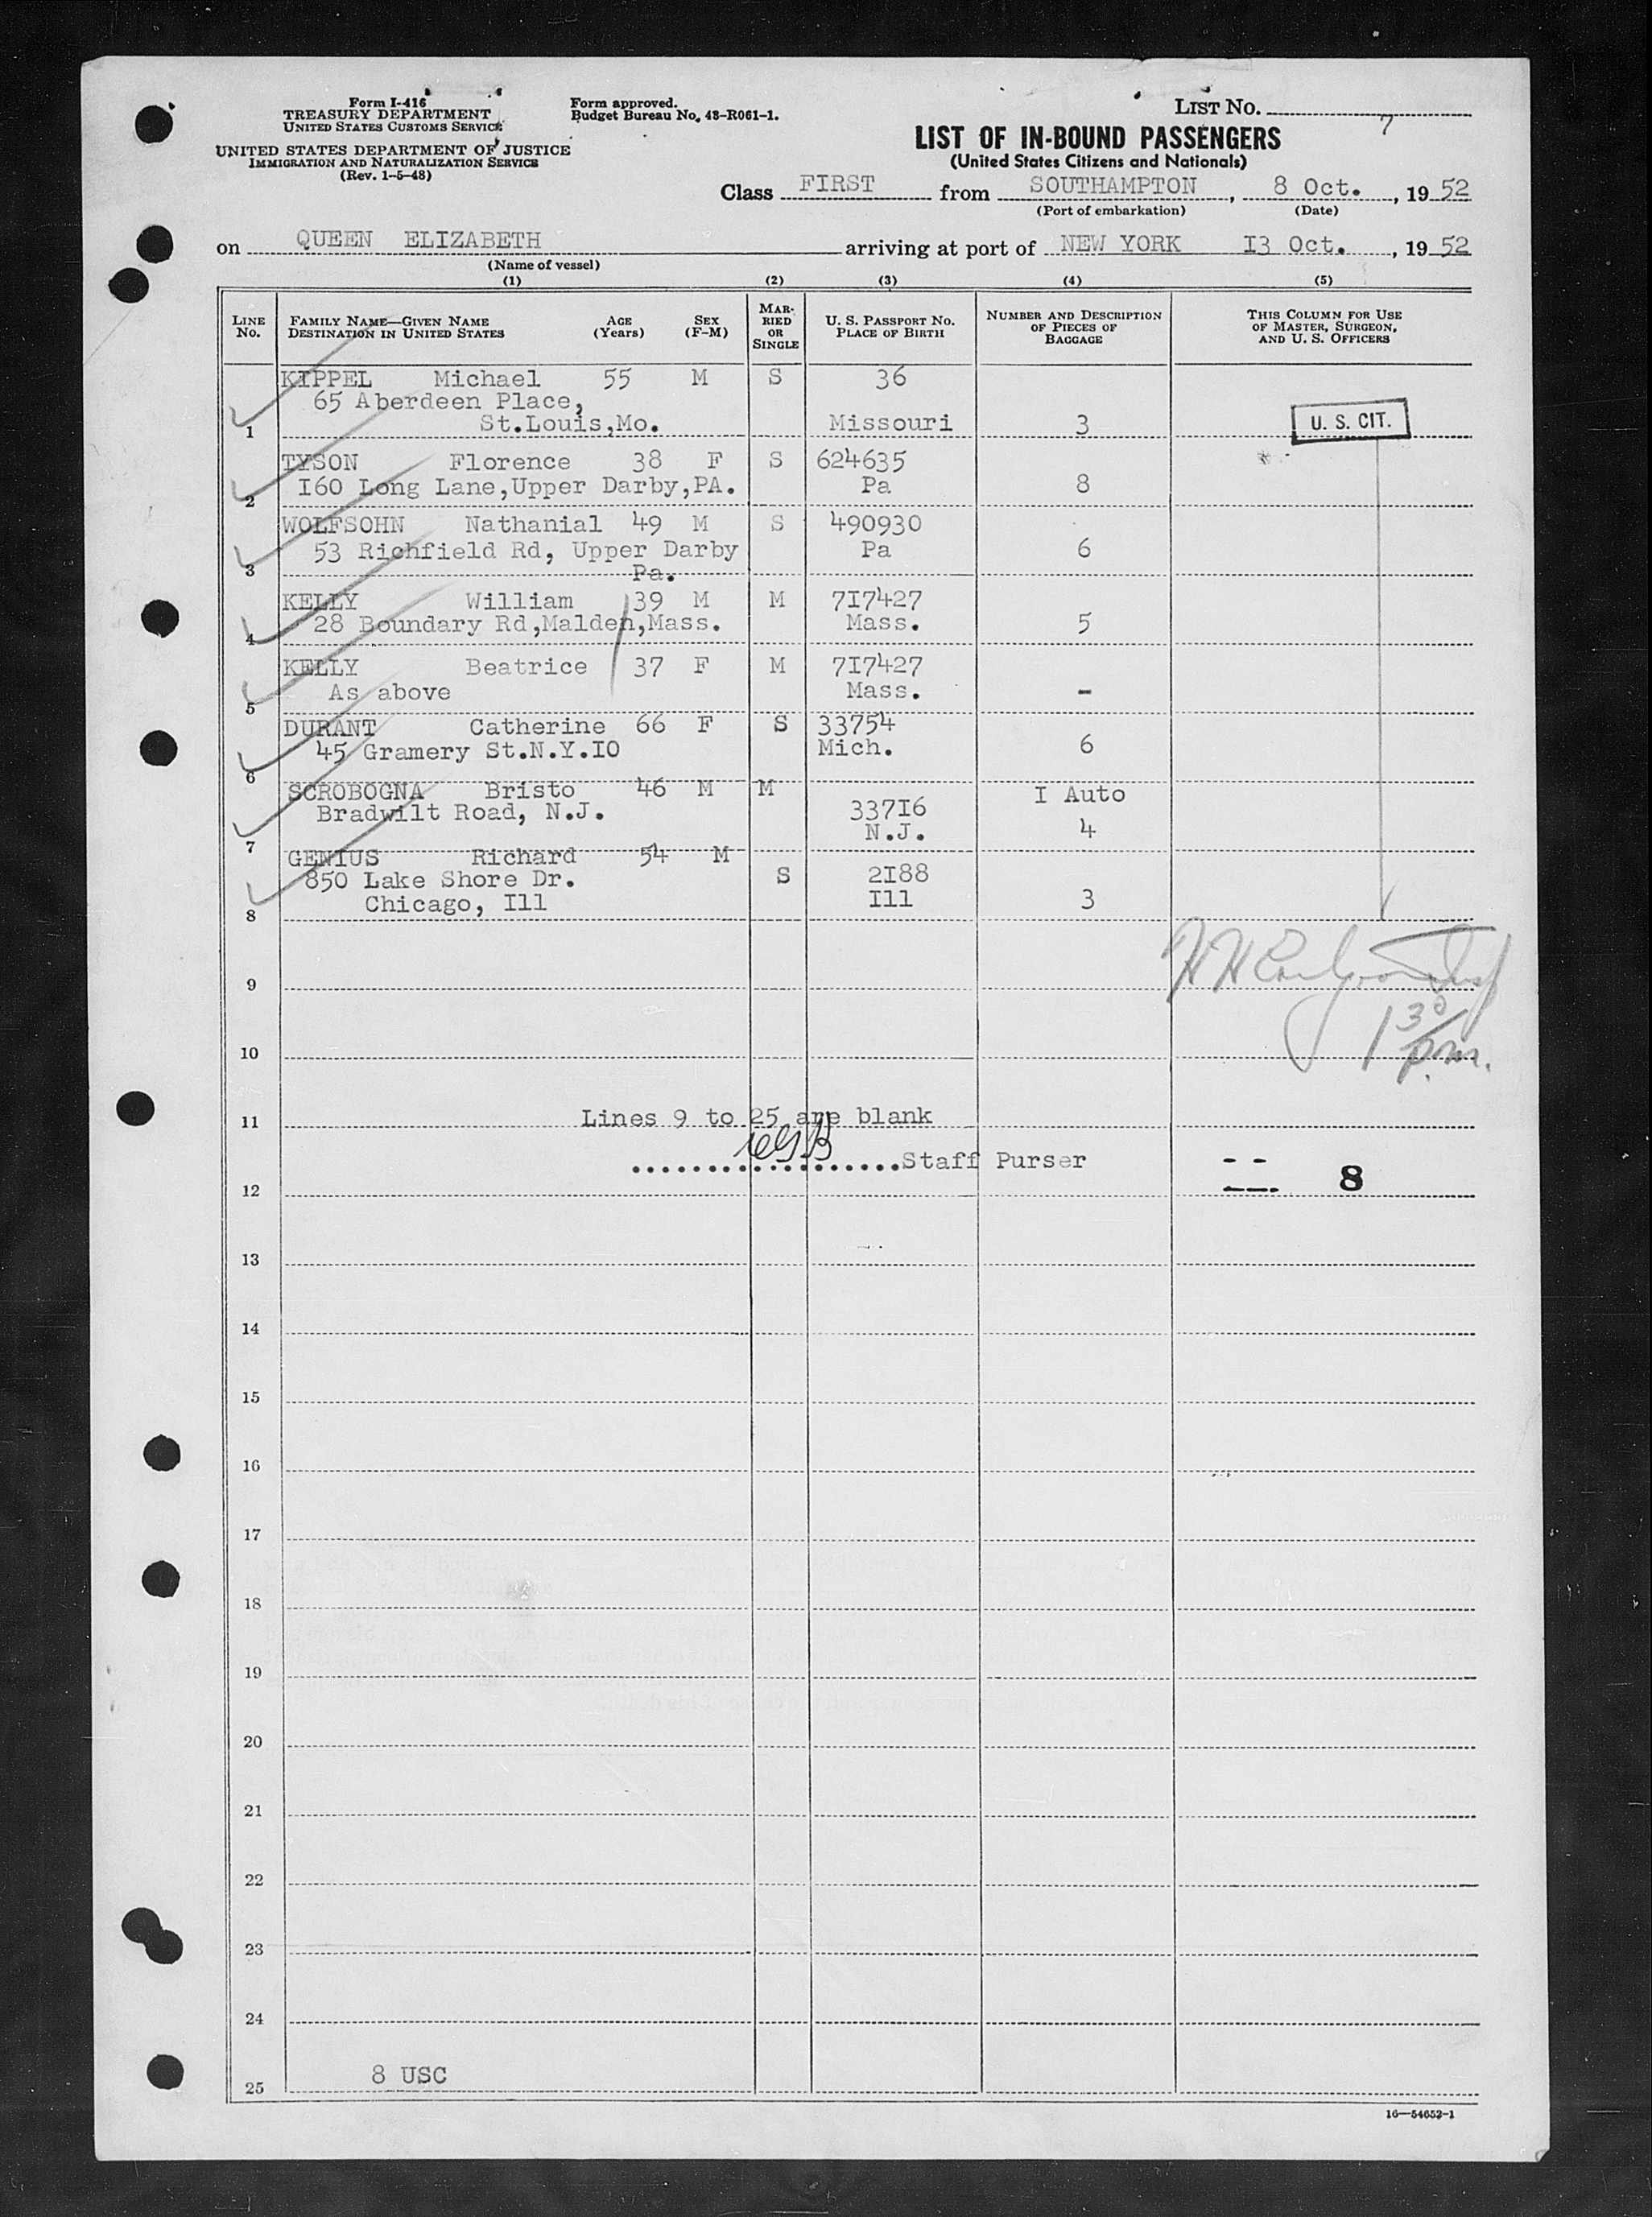 Form I-416
TREASURY DEPARTMENT
UNITED STATES CUSTOMS SERVICE
UNITED STATES DEPARTMENT OF JUSTICE
IMMIGRATION AND NATURALIZATION SERVICE
(Rev. 1-5-48)
Form approved.
Budget Bureau No. 43-R061-1.
LIST NO.
7
LIST OF IN-BOUND PASSENGERS
(United States Citizens and Nationals)
Class FIRST from SOUTHAMPTON, 8 Oct., 1952
(Port of embarkation) (Date)
on QUEEN ELIZABETH arriving at port of NEW YORK I3 Oct., 1952
(Name of vessel)
(1) (2) (3) (4) (5)
LINE NO.
FAMILY NAME—GIVEN NAME
DESTINATION IN UNITED STATES
AGE (Years)
SEX (F-M)
MARRIED OR SINGLE
U. S. PASSPORT NO.
PLACE OF BIRTH
NUMBER AND DESCRIPTION OF PIECES OF BAGGAGE
THIS COLUMN FOR USE OF MASTER, SURGEON, AND U. S. OFFICERS
KIPPEL Michael 55 M S 36
65 Aberdeen Place,
1 St.Louis,Mo. Missouri 3 U. S. CIT.
TYSON Florence 38 F S 624635
2 I60 Long Lane,Upper Darby,PA. Pa 8
WOLFSOHN Nathanial 49 M S 490930
53 Richfield Rd, Upper Darby Pa 6
3 Pa.
KELLY William 39 M M 7I7427
4 28 Boundary Rd,Malden,Mass. Mass. 5
KELLY Beatrice 37 F M 7I7427
5 As above Mass. -
DURANT Catherine 66 F S 33754
6 45 Gramery St.N.Y.IO Mich. 6
SCROBOGNA Bristo 46 M M I Auto
Bradwilt Road, N.J. 337I6
7 N.J. 4
GENIUS Richard 54 M
850 Lake Shore Dr. S 2I88
8 Chicago, Ill Ill 3
9
1 30 p.m.
10
11 Lines 9 to 25 are blank
..................Staff Purser
12 8
13
14
15
16
17
18
19
20
21
22
23
24
25 8 USC
16—54652-1